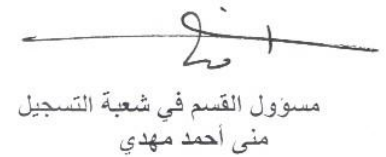 مسؤول القسم في شعبة التسجيل
منى أحمد مهدي